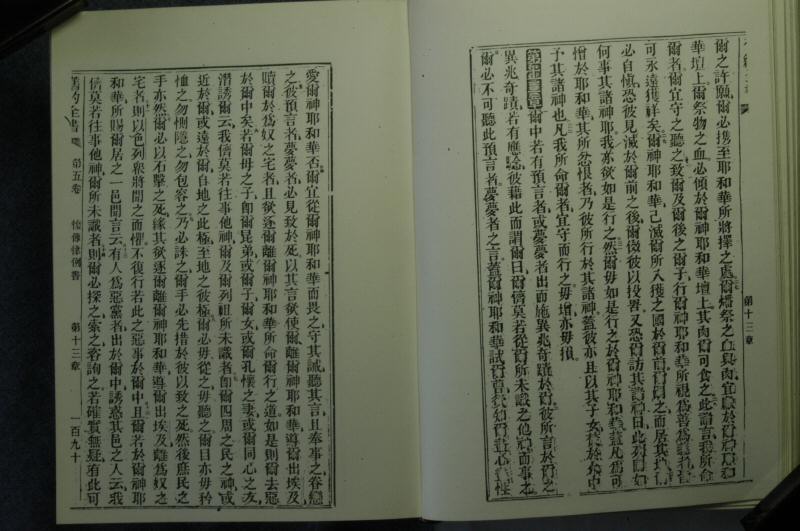 爾之許願爾必携至耶和華所將擇之處爾燔祭之血與肉宜
華壇上爾祭物之血必傾於爾神耶和華壇上其肉爾可食之此諸言我所命
爾者爾宜守之聽之致爾及爾後之子行爾神耶和華所視為善為
可永遠獲祥矣爾神耶和華已滅爾所入獲之國於爾前爾得之而居其地
必自愼恐彼見滅於爾前之後爾傚彼以投罟又恐爾訪其諸神曰此列國如
何事其諸神耶我亦欲如是行之然爾毋如是行之於爾神耶和華蓋凡為可
憎於耶和華其所忿恨者乃彼所行於其諸神蓋彼亦且以其子女
予其諸神也凡我所命爾者宜守而行之毋增亦毋損
爾中若有預言者或夢夢者出而施異兆奇蹟於爾彼所言於爾之
異兆奇蹟若有應驗彼藉此而謂爾曰爾儕莫若從爾所未識之他神而事之
爾必不可聽此預言者夢夢者之言蓋爾神耶和華試爾
第十三章
愛爾神耶和華否爾宜從爾神耶和華而畏之守其誡聽其言且奉事之眷戀
之彼預言者夢夢者必見致於死以其言欲使爾離爾神耶和華導爾出埃及
贖爾於為奴之宅者且欲逐爾離爾神耶和華所命爾行之道如是則爾去惡
於爾中矣若爾母之子卽爾昆弟或爾子爾女或爾孔懷之妻或爾同心之友
潛誘爾云我儕莫若往事他神爾及爾列祖所未識者卽爾四周之民之神或
近於爾或遠於爾自地之此極至地之彼極爾必毋從之毋聽之爾目亦毋矜
恤之勿惻隱之勿包容之乃必誅之爾手必先措於彼以致之死然後庶民之
手亦然爾必以石擊之死緣其欲逐爾離爾神耶和華導爾出埃及離為奴之
宅者則以色列衆將聞之而懼不復行若此之惡事於爾中且爾若於爾神耶
和華所賜爾居之一邑聞言云有人為惡黨者出於爾中誘惑其邑之人云我
儕莫若往事他神爾所未識者則爾必探之索之咨詢之若確實無疑有此可
舊約全書 第五卷 復傳律例書 第十三章 一百九十